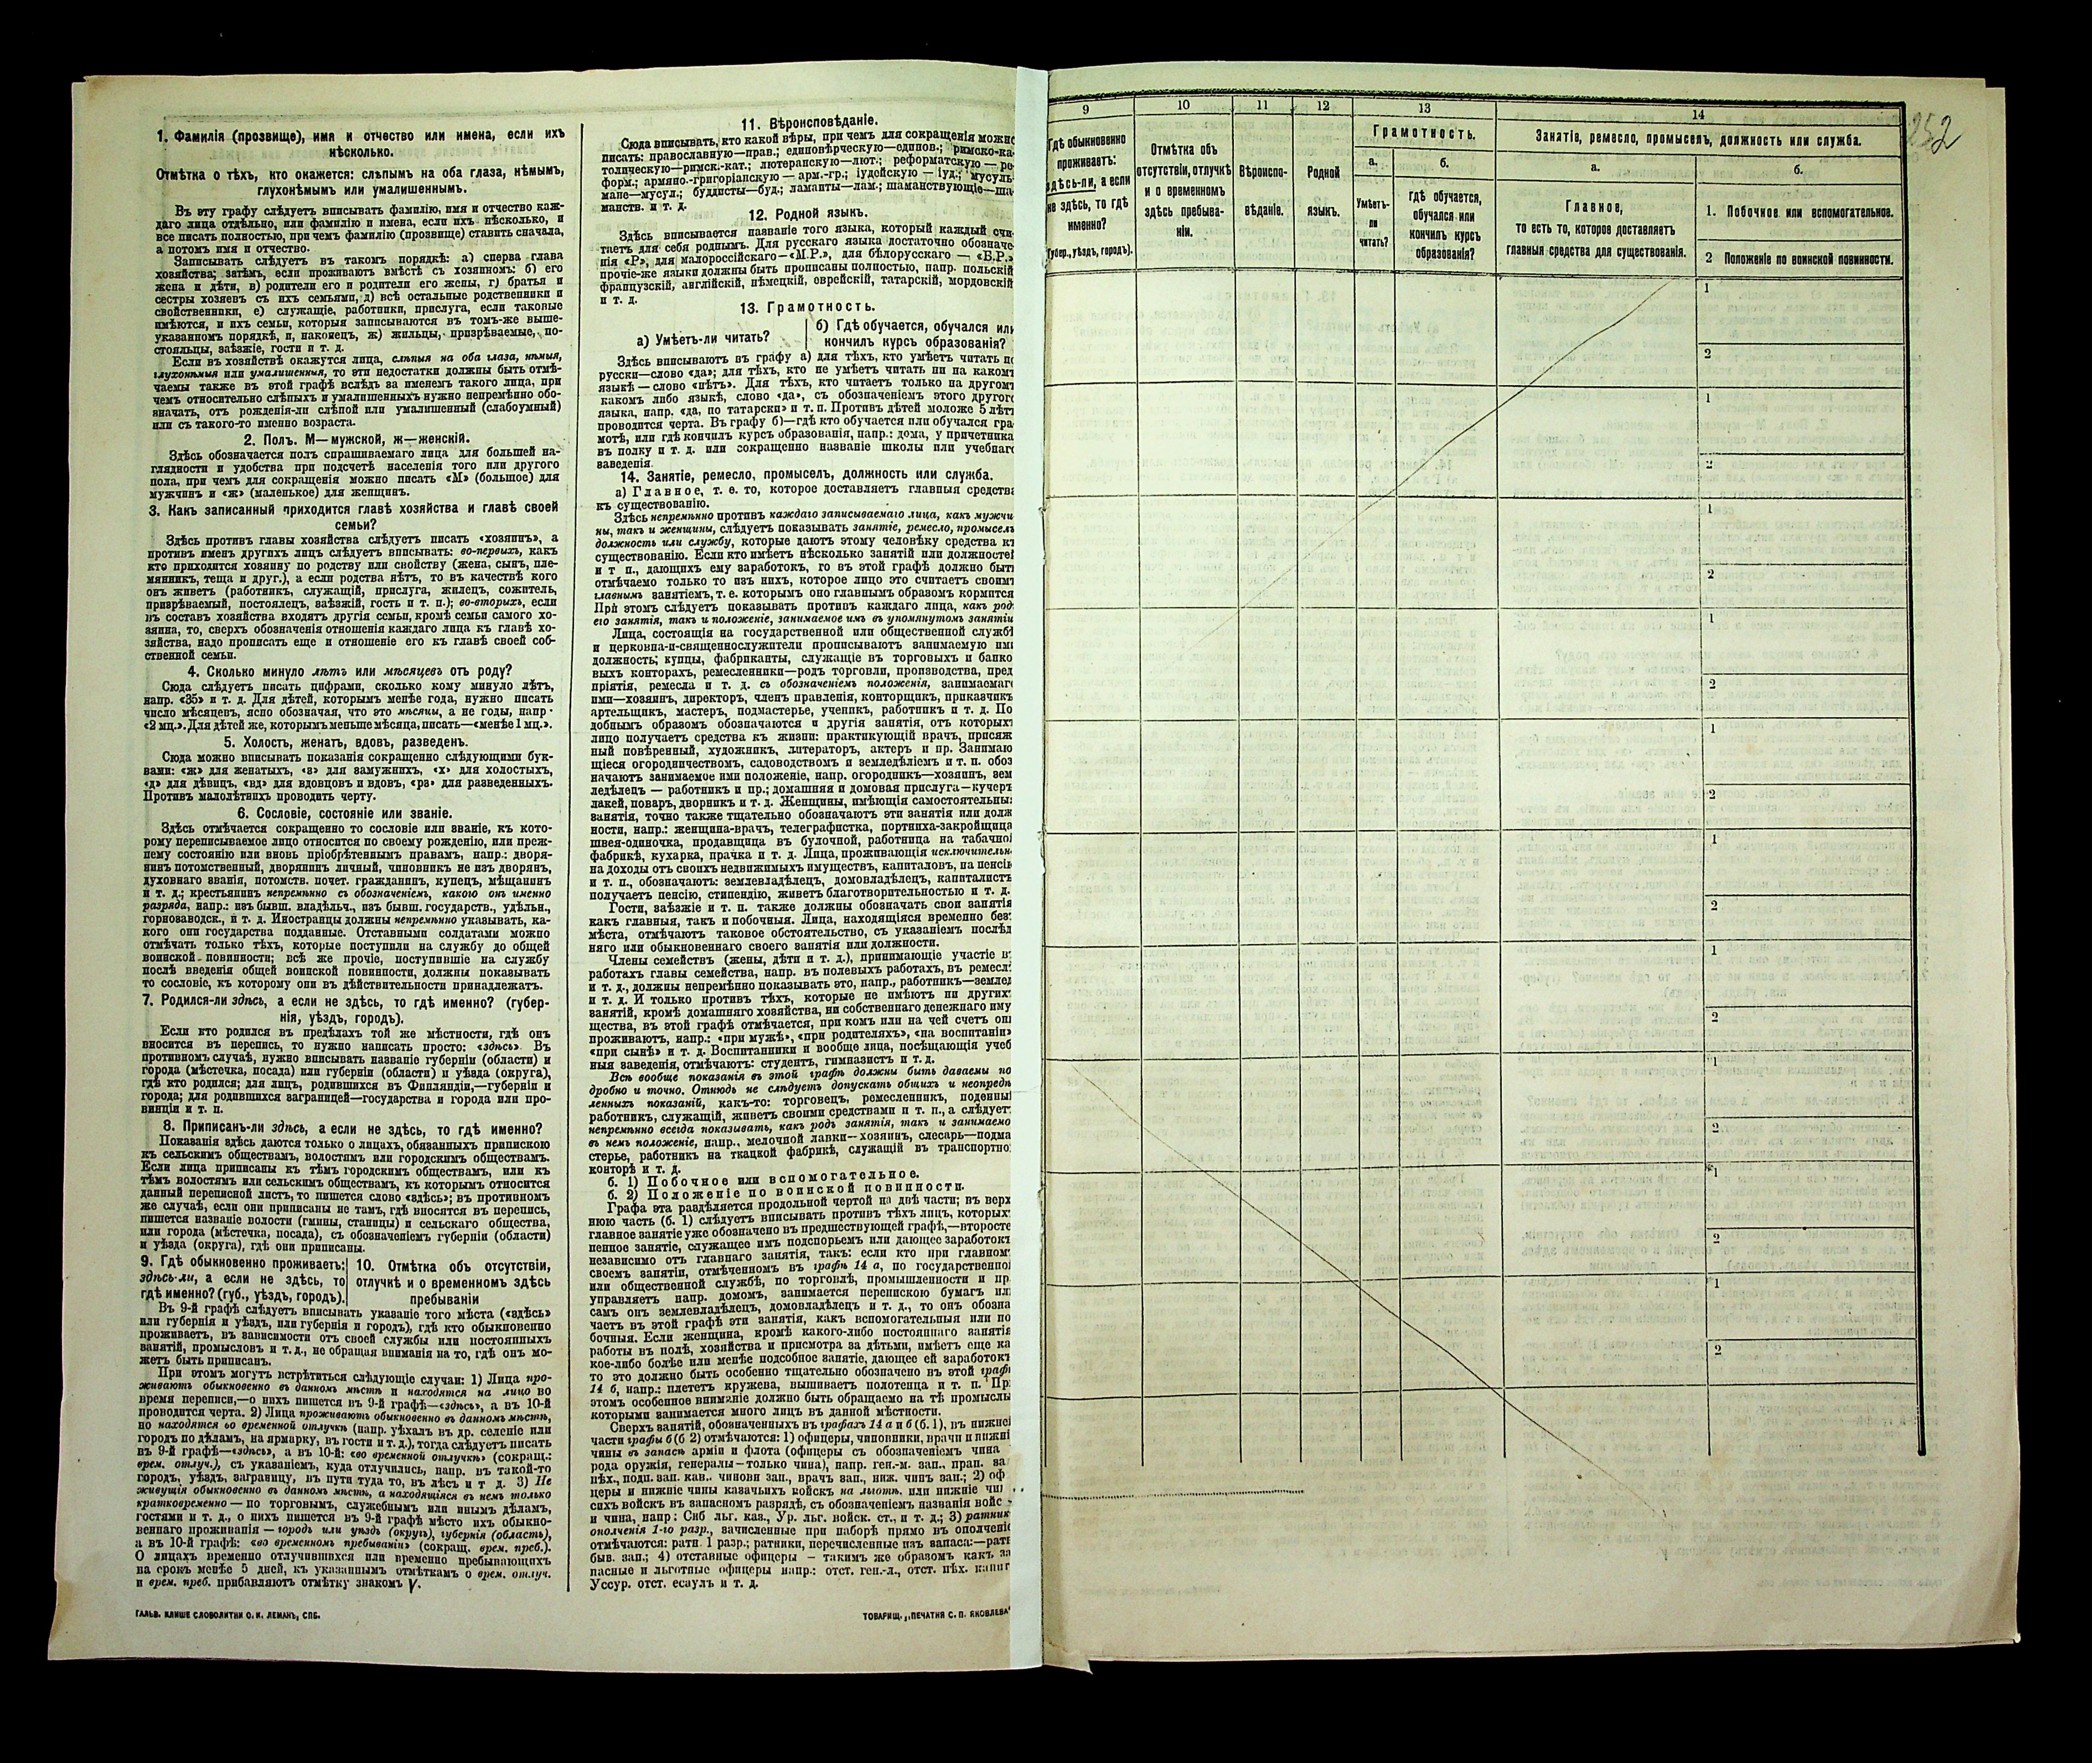 1. Фамилія (прозвище), имя и отчество или имена, если ихъ
нѣсколько.
Отмѣтка о тѣхъ, кто окажется: слѣпымъ на оба глаза, нѣмымъ,
глухонѣмымъ или умалишеннымъ.
Въ эту графу слѣдуетъ вписывать фамилію, имя и отчество каж-
даго лица отдѣльно, или фамилію и имена, если ихъ нѣсколько, и
все писать полностью, при чемъ фамилію (прозвище) ставить сначала,
а потомъ имя и отчество.
Записывать слѣдуетъ въ такомъ порядкѣ: а) сперва глава
хозяйства; затѣмъ, если проживаютъ вмѣстѣ съ хозяиномъ: б) его
жена и дѣти, в) родители его и родители его жены, г) братья и
сестры хозяевъ съ ихъ семьями, д) всѣ остальные родственники и
свойственники, е) служащіе, работники, прислуга, если таковые
имѣются, и ихъ семьи, которыя записываются въ томъ-же выше-
указанномъ порядкѣ, и, наконецъ, ж) жильцы, призрѣваемые, по-
стояльцы, заѣзжіе, гости и т. д.
Если въ хозяйствѣ окажутся лица, слѣпыя на оба глаза, нѣмыя,
глухонѣмыя или умалишенныя, то эти недостатки должны быть отмѣ-
чаемы также въ этой графѣ вслѣдъ за именемъ такого лица, при
чемъ относительно слѣпыхъ и умалишенныхъ нужно непремѣнно обо-
значать, отъ рожденія-ли слѣпой или умалишенный (слабоумный)
или съ такого-то именно возраста.
2. Полъ. М—мужской, ж—женскій.
Здѣсь обозначается полъ спрашиваемаго лица для большей на-
глядности и удобства при подсчетѣ населенія того или другого
пола, при чемъ для сокращенія можно писать «М» (большое) для
мужчинъ и «ж» (маленькое) для женщинъ.
3. Какъ записанный приходится главѣ хозяйства и главѣ своей
семьи?
Здѣсь противъ главы хозяйства слѣдуетъ писать «хозяинъ», а
противъ именъ другихъ лицъ слѣдуетъ вписывать: во-первыхъ, какъ
кто приходится хозяину по родству или свойству (жена, сынъ, пле-
мянникъ, теща и друг.), а если родства нѣтъ, то въ качествѣ кого
онъ живетъ (работникъ, служащій, прислуга, жилецъ, сожитель,
призрѣваемый, постоялецъ, заѣзжій, гость и т. п.); во-вторыхъ, если
въ составъ хозяйства входятъ другія семьи, кромѣ семьи самого хо-
зяина, то, сверхъ обозначенія отношенія каждаго лица къ главѣ хо-
зяйства, надо прописать еще и отношеніе его къ главѣ своей соб-
ственной семьи.
4. Сколько минуло лѣтъ или мѣсяцевъ отъ роду?
Сюда слѣдуетъ писать цифрами, сколько кому минуло лѣтъ,
напр. «35» и т. д. Для дѣтей, которымъ менѣе года, нужно писать
число мѣсяцевъ, ясно обозначая, что это мѣсяцы, а не годы, напр.
«2 мц.». Для дѣтей же, которымъ меньше мѣсяца, писать—«менѣе 1 мц.».
5. Холостъ, женатъ, вдовъ, разведенъ.
Сюда можно вписывать показанія сокращенно слѣдующими бук-
вами: «ж» для женатыхъ, «з» для замужнихъ, «х» для холостыхъ,
«д» для дѣвицъ, «вд» для вдовцовъ и вдовъ, «рз» для разведенныхъ.
Противъ малолѣтнихъ проводить черту.
6. Сословіе, состояніе или званіе.
Здѣсь отмѣчается сокращенно то сословіе или званіе, къ кото-
рому переписываемое лицо относится по своему рожденію, или преж-
нему состоянію или вновь пріобрѣтеннымъ правамъ, напр.: дворя-
нинъ потомственный, дворянинъ личный, чиновникъ не изъ дворянъ,
духовнаго званія, потомств. почет. гражданинъ, купецъ, мѣщанинъ
и т. д.; крестьянинъ непремѣнно съ обозначеніемъ, какого онъ именно
разряда, напр.: изъ бывш. владѣльч., изъ бывш. государств., удѣльн.,
горнозаводск., и т. д. Иностранцы должны непремѣнно указывать, ка-
кого они государства подданные. Отставными солдатами можно
отмѣчать только тѣхъ, которые поступили на службу до общей
воинской повинности; всѣ же прочіе, поступившіе на службу
послѣ введенія общей воинской повинности, должны показывать
то сословіе, къ которому они въ дѣйствительности принадлежатъ.
7. Родился-ли здѣсь, а если не здѣсь, то гдѣ именно? (губер-
нія, уѣздъ, городъ).
Если кто родился въ предѣлахъ той же мѣстности, гдѣ онъ
вносится въ перепись, то нужно написать просто: «здѣсь». Въ
противномъ случаѣ, нужно вписывать названіе губерніи (области) и
города (мѣстечка, посада) или губерніи (области) и уѣзда (округа),
гдѣ кто родился; для лицъ, родившихся въ Финляндіи,—губерніи и
города; для родившихся заграницей—государства и города или про-
винціи и т. п.
8. Приписанъ-ли здѣсь, а если не здѣсь, то гдѣ именно?
Показанія здѣсь даются только о лицахъ, обязанныхъ припискою
къ сельскимъ обществамъ, волостямъ или городскимъ обществамъ.
Если лица приписаны къ тѣмъ городскимъ обществамъ, или къ
тѣмъ волостямъ или сельскимъ обществамъ, къ которымъ относится
данный переписной листъ, то пишется слово «здѣсь»; въ противномъ
же случаѣ, если они приписаны не тамъ, гдѣ вносятся въ перепись,
пишется названіе волости (гмины, станицы) и сельскаго общества,
или города (мѣстечка, посада), съ обозначеніемъ губерніи (области)
и уѣзда (округа), гдѣ они приписаны.
9. Гдѣ обыкновенно проживаетъ:
здѣсь-ли, а если не здѣсь, то
гдѣ именно? (губ., уѣздъ, городъ).
10. Отмѣтка объ отсутствіи,
отлучкѣ и о временномъ здѣсь
пребываніи
Въ 9-й графѣ слѣдуетъ вписывать указаніе того мѣста («здѣсь»
или губернія и уѣздъ, или губернія и городъ), гдѣ кто обыкновенно
проживаетъ, въ зависимости отъ своей службы или постоянныхъ
занятій, промысловъ и т. д., не обращая вниманія на то, гдѣ онъ мо-
жетъ быть приписанъ.
При этомъ могутъ встрѣтиться слѣдующіе случаи: 1) Лица про-
живаютъ обыкновенно въ данномъ мѣстѣ и находятся на лицо во
время переписи,—о нихъ пишется въ 9-й графѣ—«здѣсь», а въ 10-й
проводится черта. 2) Лица проживаютъ обыкновенно въ данномъ мѣстѣ,
но находятся во временной отлучкѣ (напр. уѣхалъ въ др. селеніе или
городъ по дѣламъ, на ярмарку, въ гости и т. д.), тогда слѣдуетъ писать
въ 9-й графѣ—«здѣсь», а въ 10-й: «во временной отлучкѣ» (сокращ.:
врем. отлуч.), съ указаніемъ, куда отлучились, напр. въ такой-то
городъ, уѣздъ, заграницу, въ пути туда то, въ лѣсъ и т д. 3) Не
живущія обыкновенно въ данномъ мѣстѣ, а находящіяся въ немъ только
кратковременно — по торговымъ, служебнымъ или инымъ дѣламъ,
гостями и т. д., о нихъ пишется въ 9-й графѣ мѣсто ихъ обыкно-
веннаго проживанія — городъ или уѣздъ (округъ), губернія (область),
а въ 10-й графѣ: «во временномъ пребываніи» (сокращ. врем. преб.).
О лицахъ временно отлучившихся или временно пребывающихъ
на срокъ менѣе 5 дней, къ указаннымъ отмѣткамъ о врем. отлуч.
и врем. преб. прибавляютъ отмѣтку знакомъ V.
ГАЛЬВ. КЛИШЕ СЛОВОЛИТНИ О. И. ЛЕМАНЪ, СПБ.
11. Вѣроисповѣданіе.
Сюда вписывать, кто какой вѣры, при чемъ для сокращенія можно
писать: православную—прав.; единовѣрческую—единов.; римско-ка-
толическую—римск.-кат.; лютеранскую—лют.; реформатскую — ре-
форм.; армяно.-григоріанскую — арм.-гр.; іудейскую — іуд.; мусуль-
мане—мусул.; буддисты—буд.; ламаиты—лам.; шаманствующіе—ша-
манств. и т. д.
12. Родной языкъ.
Здѣсь вписывается названіе того языка, который каждый счи-
таетъ для себя роднымъ. Для русскаго языка достаточно обозначе-
нія «Р», для малороссійскаго—«М.Р.», для бѣлорусскаго — «Б.Р.»
прочіе-же языки должны быть прописаны полностью, напр. польскій
французскій, англійскій, нѣмецкій, еврейскій, татарскій, мордовскій
и т. д.
13. Грамотность.
а) Умѣетъ-ли читать?
б) Гдѣ обучается, обучался или
кончилъ курсъ образованія?
Здѣсь вписываютъ въ графу а) для тѣхъ, кто умѣетъ читать по
русски—слово «да»; для тѣхъ, кто не умѣетъ читать ни на какомъ
языкѣ—слово «нѣтъ». Для тѣхъ, кто читаетъ только на другомъ
какомъ либо языкѣ, слово «да», съ обозначеніемъ этого другого
языка, напр. «да, по татарски» и т. п. Противъ дѣтей моложе 5 лѣтъ
проводится черта. Въ графу б)—гдѣ кто обучается или обучался гра
мотѣ, или гдѣ кончилъ курсъ образованія, напр.: дома, у причетника
въ полку и т. д. или сокращенно названіе школы или учебнаго
заведенія.
14. Занятіе, ремесло, промыселъ, должность или служба.
а) Главное, т. е. то, которое доставляетъ главныя средства
къ существованію.
Здѣсь непремѣнно противъ каждаго записываемаго лица, какъ мужчи
ны, такъ и женщины, слѣдуетъ показывать занятіе, ремесло, промыселъ
должность или службу, которые даютъ этому человѣку средства къ
существованію. Если кто имѣетъ нѣсколько занятій или должностей
и т п., дающихъ ему заработокъ, то въ этой графѣ должно быть
отмѣчаемо только то изъ нихъ, которое лицо это считаетъ своимъ
главнымъ занятіемъ, т. е. которымъ оно главнымъ образомъ кормится
При этомъ слѣдуетъ показывать противъ каждаго лица, какъ родъ
его занятія, такъ и положеніе, занимаемое имъ въ упомянутомъ занятіи
Лица, состоящія на государственной или общественной службѣ
и церковно-и-священнослужители прописываютъ занимаемую ими
должность; купцы, фабриканты, служащіе въ торговыхъ и банко
выхъ конторахъ, ремесленники—родъ торговли, производства, пред
пріятія, ремесла и т. д. съ обозначеніемъ положенія, занимаемаго
ими—хозяинъ, директоръ, членъ правленія, конторщикъ, приказчикъ
артельщикъ, мастеръ, подмастерье, ученикъ, работникъ и т. д. По
добнымъ образомъ обозначаются и другія занятія, отъ которыхъ
лицо получаетъ средства къ жизни: практикующій врачъ, присяж
ный повѣренный, художникъ, литераторъ, актеръ и пр. Занимаю
щіеся огородничествомъ, садоводствомъ и земледѣліемъ и т. п. обоз
начаютъ занимаемое ими положеніе, напр. огородникъ—хозяинъ, зем
ледѣлецъ — работникъ и пр.; домашняя и домовая прислуга—кучеръ
лакей, поваръ, дворникъ и т. д. Женщины, имѣющія самостоятельныя
занятія, точно также тщательно обозначаютъ эти занятія или долж
ности, напр.: женщина-врачъ, телеграфистка, портниха-закройщица
швея-одиночка, продавщица въ булочной, работница на табачной
фабрикѣ, кухарка, прачка и т. д. Лица, проживающія исключительно
на доходы отъ своихъ недвижимыхъ имуществъ, капиталовъ, на пенсію
и т. п., обозначаютъ: землевладѣлецъ, домовладѣлецъ, капиталистъ
получаетъ пенсію, стипендію, живетъ благотворительностью и т. д.
Гости, заѣзжіе и т. п. также должны обозначать свои занятія
какъ главныя, такъ и побочныя. Лица, находящіяся временно безъ
мѣста, отмѣчаютъ таковое обстоятельство, съ указаніемъ послѣд
няго или обыкновеннаго своего занятія или должности.
Члены семействъ (жены, дѣти и т. д.), принимающіе участіе въ
работахъ главы семейства, напр. въ полевыхъ работахъ, въ ремеслѣ
и т. д., должны непремѣнно показывать это, напр., работникъ—землед
и т. д. И только противъ тѣхъ, которые не имѣютъ ни другихъ
занятій, кромѣ домашняго хозяйства, ни собственнаго денежнаго иму
щества, въ этой графѣ отмѣчается, при комъ или на чей счетъ они
проживаютъ, напр.: «при мужѣ», «при родителяхъ», «на воспитаніи»
«при сынѣ» и т. д. Воспитанники и вообще лица, посѣщающія учеб
ныя заведенія, отмѣчаютъ: студентъ, гимназистъ и т. д.
Всѣ вообще показанія въ этой графѣ должны быть даваемы по
дробно и точно. Отнюдь не слѣдуетъ допускать общихъ и неопредѣ
ленныхъ показаній, какъ-то: торговецъ, ремесленникъ, поденный
работникъ, служащій, живетъ своими средствами и т. п., а слѣдуетъ
непремѣнно всегда показывать, какъ родъ занятія, такъ и занимаемо
въ немъ положеніе, напр., мелочной лавки—хозяинъ, слесарь—подма
стерье, работникъ на ткацкой фабрикѣ, служащій въ транспортной
конторѣ и т. д.
б. 1) Побочное или вспомогательное.
б. 2) Положеніе по воинской повинности.
Графа эта раздѣляется продольной чертой на двѣ части; въ верх
нюю часть (б. 1) слѣдуетъ вписывать противъ тѣхъ лицъ, которыхъ
главное занятіе уже обозначено въ предшествующей графѣ,—второсте
пенное занятіе, служащее имъ подспорьемъ или дающее заработокъ
независимо отъ главнаго занятія, такъ: если кто при главномъ
своемъ занятіи, отмѣченномъ въ графѣ 14 а, по государственной
или общественной службѣ, по торговлѣ, промышленности и пр
управляетъ напр. домомъ, занимается перепискою бумагъ или
самъ онъ землевладѣлецъ, домовладѣлецъ и т. д., то онъ обозна
чаетъ въ этой графѣ эти занятія, какъ вспомогательныя или по
бочныя. Если женщина, кромѣ какого-либо постояннаго занятія
работы въ полѣ, хозяйства и присмотра за дѣтьми, имѣетъ еще ка
кое-либо болѣе или менѣе подсобное занятіе, дающее ей заработокъ
то это должно быть особенно тщательно обозначено въ этой графѣ
14 б, напр.: плететъ кружева, вышиваетъ полотенца и т. п. Пр
этомъ особенное вниманіе должно быть обращаемо на тѣ промыслы
которыми занимается много лицъ въ данной мѣстности.
Сверхъ занятій, обозначенныхъ въ графахъ 14 а и б (б. 1), въ нижней
части графы б (б 2) отмѣчаются: 1) офицеры, чиновники, врачи и нижні
чины въ запасѣ арміи и флота (офицеры съ обозначеніемъ чина
рода оружія, генералы—только чина), напр. ген-м. зап., прап. за
пѣх., подп. зап. кав., чиновн зап., врачъ зап., ниж. чинъ зап.; 2) оф
церы и нижніе чины казачьихъ войскъ на льготѣ, или нижніе чи
сихъ войскъ въ запасномъ разрядѣ, съ обозначеніемъ названія войс
и чина, напр: Сиб льг. каз., Ур. льг. войск. ст., и т. д.; 3) ратник
ополченія 1-го разр., зачисленные при наборѣ прямо въ ополчені
отмѣчаются: ратн. 1 разр.; ратники, перечисленные изъ запаса:—рат
быв. зап.; 4) отставные офицеры — такимъ же образомъ какъ за
пасные и льготные офицеры напр.: отст. ген.-л., отст. пѣх. капит
Уссур. отст. есаулъ и т. д.
ТОВАРИЩ. „ПЕЧАТНЯ С. П. ЯКОВЛЕВА“
252
9
10
11
12
13
14
Гдѣ обыкновенно
проживаетъ:
здѣсь-ли, а если
не здѣсь, то гдѣ
именно?
(губер., уѣздъ, городъ).
Отмѣтка объ
отсутствіи, отлучкѣ
и о временномъ
здѣсь пребыва-
ніи.
Вѣроиспо-
вѣданіе.
Родной
языкъ.
Грамотность.
а.
Умѣетъ-
ли
читать?
б.
Гдѣ обучается,
обучался или
кончилъ курсъ
образованія?
Занятіе, ремесло, промыселъ, должность или служба.
а.
Главное,
то есть то, которое доставляетъ
главныя средства для существованія.
б.
1. Побочное или вспомогательное.
2 Положеніе по воинской повинности.
1
2
1
2
1
2
1
2
1
2
1
2
1
2
1
2
1
2
1
2